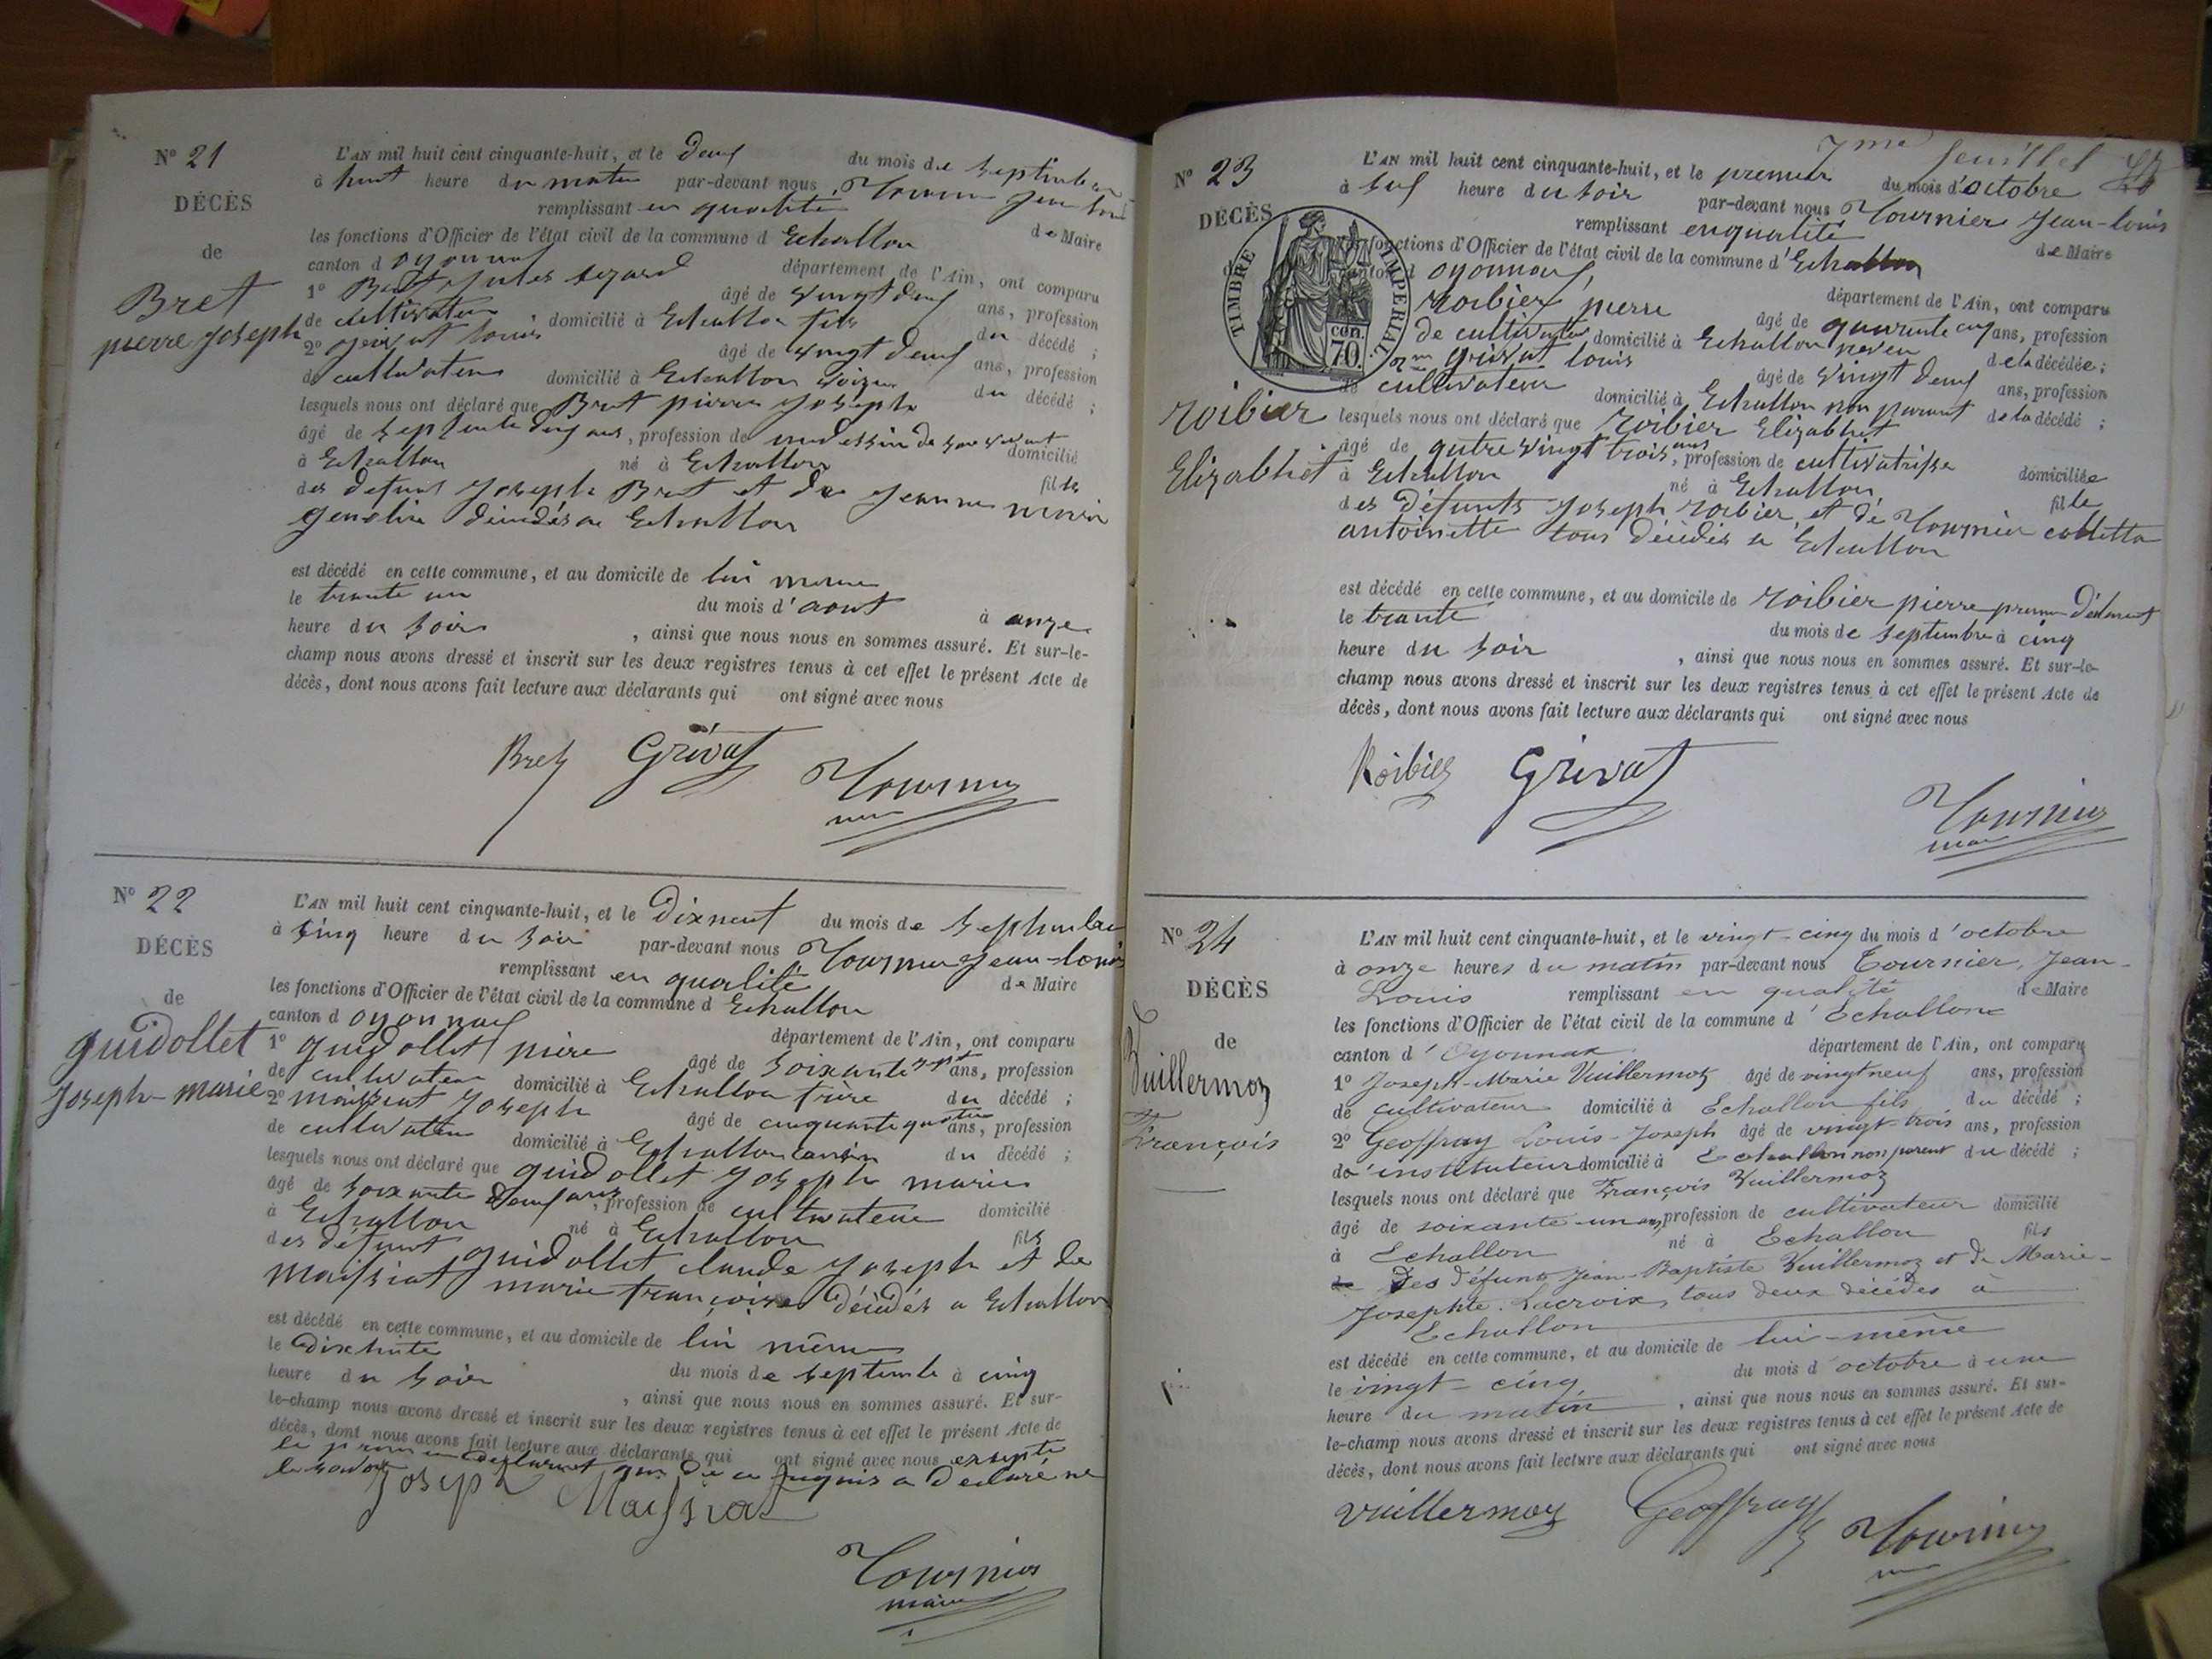 N° 21
DÉCÈS
de
Bret
pierre Joseph
L'AN mil huit cent cinquante-huit, et le deux du mois de septembre
à huit heure du matin par-devant nous Tournier Jean louis
remplissant en qualité de Maire
les fonctions d'Officier de l'état civil de la commune d Echallon
canton d oyonnax département de l'Ain, ont comparu
1° Bret jules âgé de vingt deux ans, profession
de cultivateur domicilié à Echallon fils du décédé ;
2° grivat louis âgé de vingt deux ans, profession
de cultivateur domicilié à Echallon voizin du décédé ;
lesquels nous ont déclaré que Bret pierre Joseph
âgé de ans, profession de domicilié
à Echallon né à Echallon fils
des defunt Joseph Bret et de Jeanne marie
décédés a Echallon
est décédé en cette commune, et au domicile de lui meme
le trante un du mois d'aout à onze
heure du soir , ainsi que nous nous en sommes assuré. Et sur-le-
champ nous avons dressé et inscrit sur les deux registres tenus à cet effet le présent Acte de
décès, dont nous avons fait lecture aux déclarants qui ont signé avec nous
Bret Grivat Tournier
N° 22
DÉCÈS
de
guidollet
Joseph-marie
L'AN mil huit cent cinquante-huit, et le Dixneuf du mois de septembre
à cinq heure du soir par-devant nous Tournier Jean-louis
remplissant en qualité de Maire
les fonctions d'Officier de l'état civil de la commune d Echallon
canton d oyonnax département de l'Ain, ont comparu
1° guidollet pière âgé de soixante sept ans, profession
de cultivateur domicilié à Echallon frère du décédé ;
2° maissiat Joseph âgé de cinquante quatre ans, profession
de cultivateur domicilié à Echallon cousin du décédé ;
lesquels nous ont déclaré que guidollet Joseph marie
âgé de soixante Deux ans, profession de cultivateur domicilié
à Echallon né à Echallon fils
des défunt guidollet claude Joseph et de
Maissiat marie françoise décédés a Echallon
est décédé en cette commune, et au domicile de lui même
le dixhuite du mois de septembre à cinq
heure du soir , ainsi que nous nous en sommes assuré. Et sur-
le-champ nous avons dressé et inscrit sur les deux registres tenus à cet effet le présent Acte de
décès, dont nous avons fait lecture aux déclarants qui ont signé avec nous exepté
le premier déclarant qui de ce requis a déclaré ne
le savoir Joseph Maissiat
Tournier
maire
7me feuillet
N° 23
DÉCÈS
TIMBRE IMPERIAL
70 cen.
roibier
Elizabhet
L'AN mil huit cent cinquante-huit, et le premier du mois d'octobre
à heure du soir par-devant nous Tournier Jean-louis
remplissant en qualité de Maire
les fonctions d'Officier de l'état civil de la commune d'Echallon
canton d oyonnax département de l'Ain, ont comparu
roibier pierre âgé de quarante cinq ans, profession
de cultivateur domicilié à Echallon neveu de la décédée ;
2me grivat louis âgé de vingt deux ans, profession
de cultivateur domicilié à Echallon non parent de la décédé ;
lesquels nous ont déclaré que roibier Elizabhet
âgé de qutre vingt trois ans, profession de cultivatrisse domiciliée
à Echallon né à Echallon fille
des défunts Joseph roibier et de Tournier collette
antoinette tous décédés a Echallon
est décédé en cette commune, et au domicile de roibier pierre premier déclarant
le trante du mois de septembre à cinq
heure du soir , ainsi que nous nous en sommes assuré. Et sur-le-
champ nous avons dressé et inscrit sur les deux registres tenus à cet effet le présent Acte de
décès, dont nous avons fait lecture aux déclarants qui ont signé avec nous
Roibier Grivat
Tournier
maire
N° 24
DÉCÈS
de
Vuillermoz
François
L'AN mil huit cent cinquante-huit, et le vingt-cinq du mois d'octobre
à onze heures du matin par-devant nous Tournier, Jean-
Louis remplissant en qualité de Maire
les fonctions d'Officier de l'état civil de la commune d'Echallon
canton d'Oyonnax département de l'Ain, ont comparu
1° Joseph-Marie Vuillermoz âgé de vingt neuf ans, profession
de cultivateur domicilié à Echallon fils du décédé ;
2° Geoffray Louis-Joseph âgé de vingt-trois ans, profession
d'instituteur domicilié à Echallon non parent du décédé ;
lesquels nous ont déclaré que François Vuillermoz
âgé de soixante-un ans, profession de cultivateur domicilié
à Echallon né à Echallon fils
des défunts Jean-Baptiste Vuillermoz et de Marie-
Josephte Lacroix, tous deux décédés à
Echallon
est décédé en cette commune, et au domicile de lui-même
le vingt-cinq du mois d'octobre à une
heure du matin , ainsi que nous nous en sommes assuré. Et sur-
le-champ nous avons dressé et inscrit sur les deux registres tenus à cet effet le présent Acte de
décès, dont nous avons fait lecture aux déclarants qui ont signé avec nous
Vuillermoz Geoffray Tournier